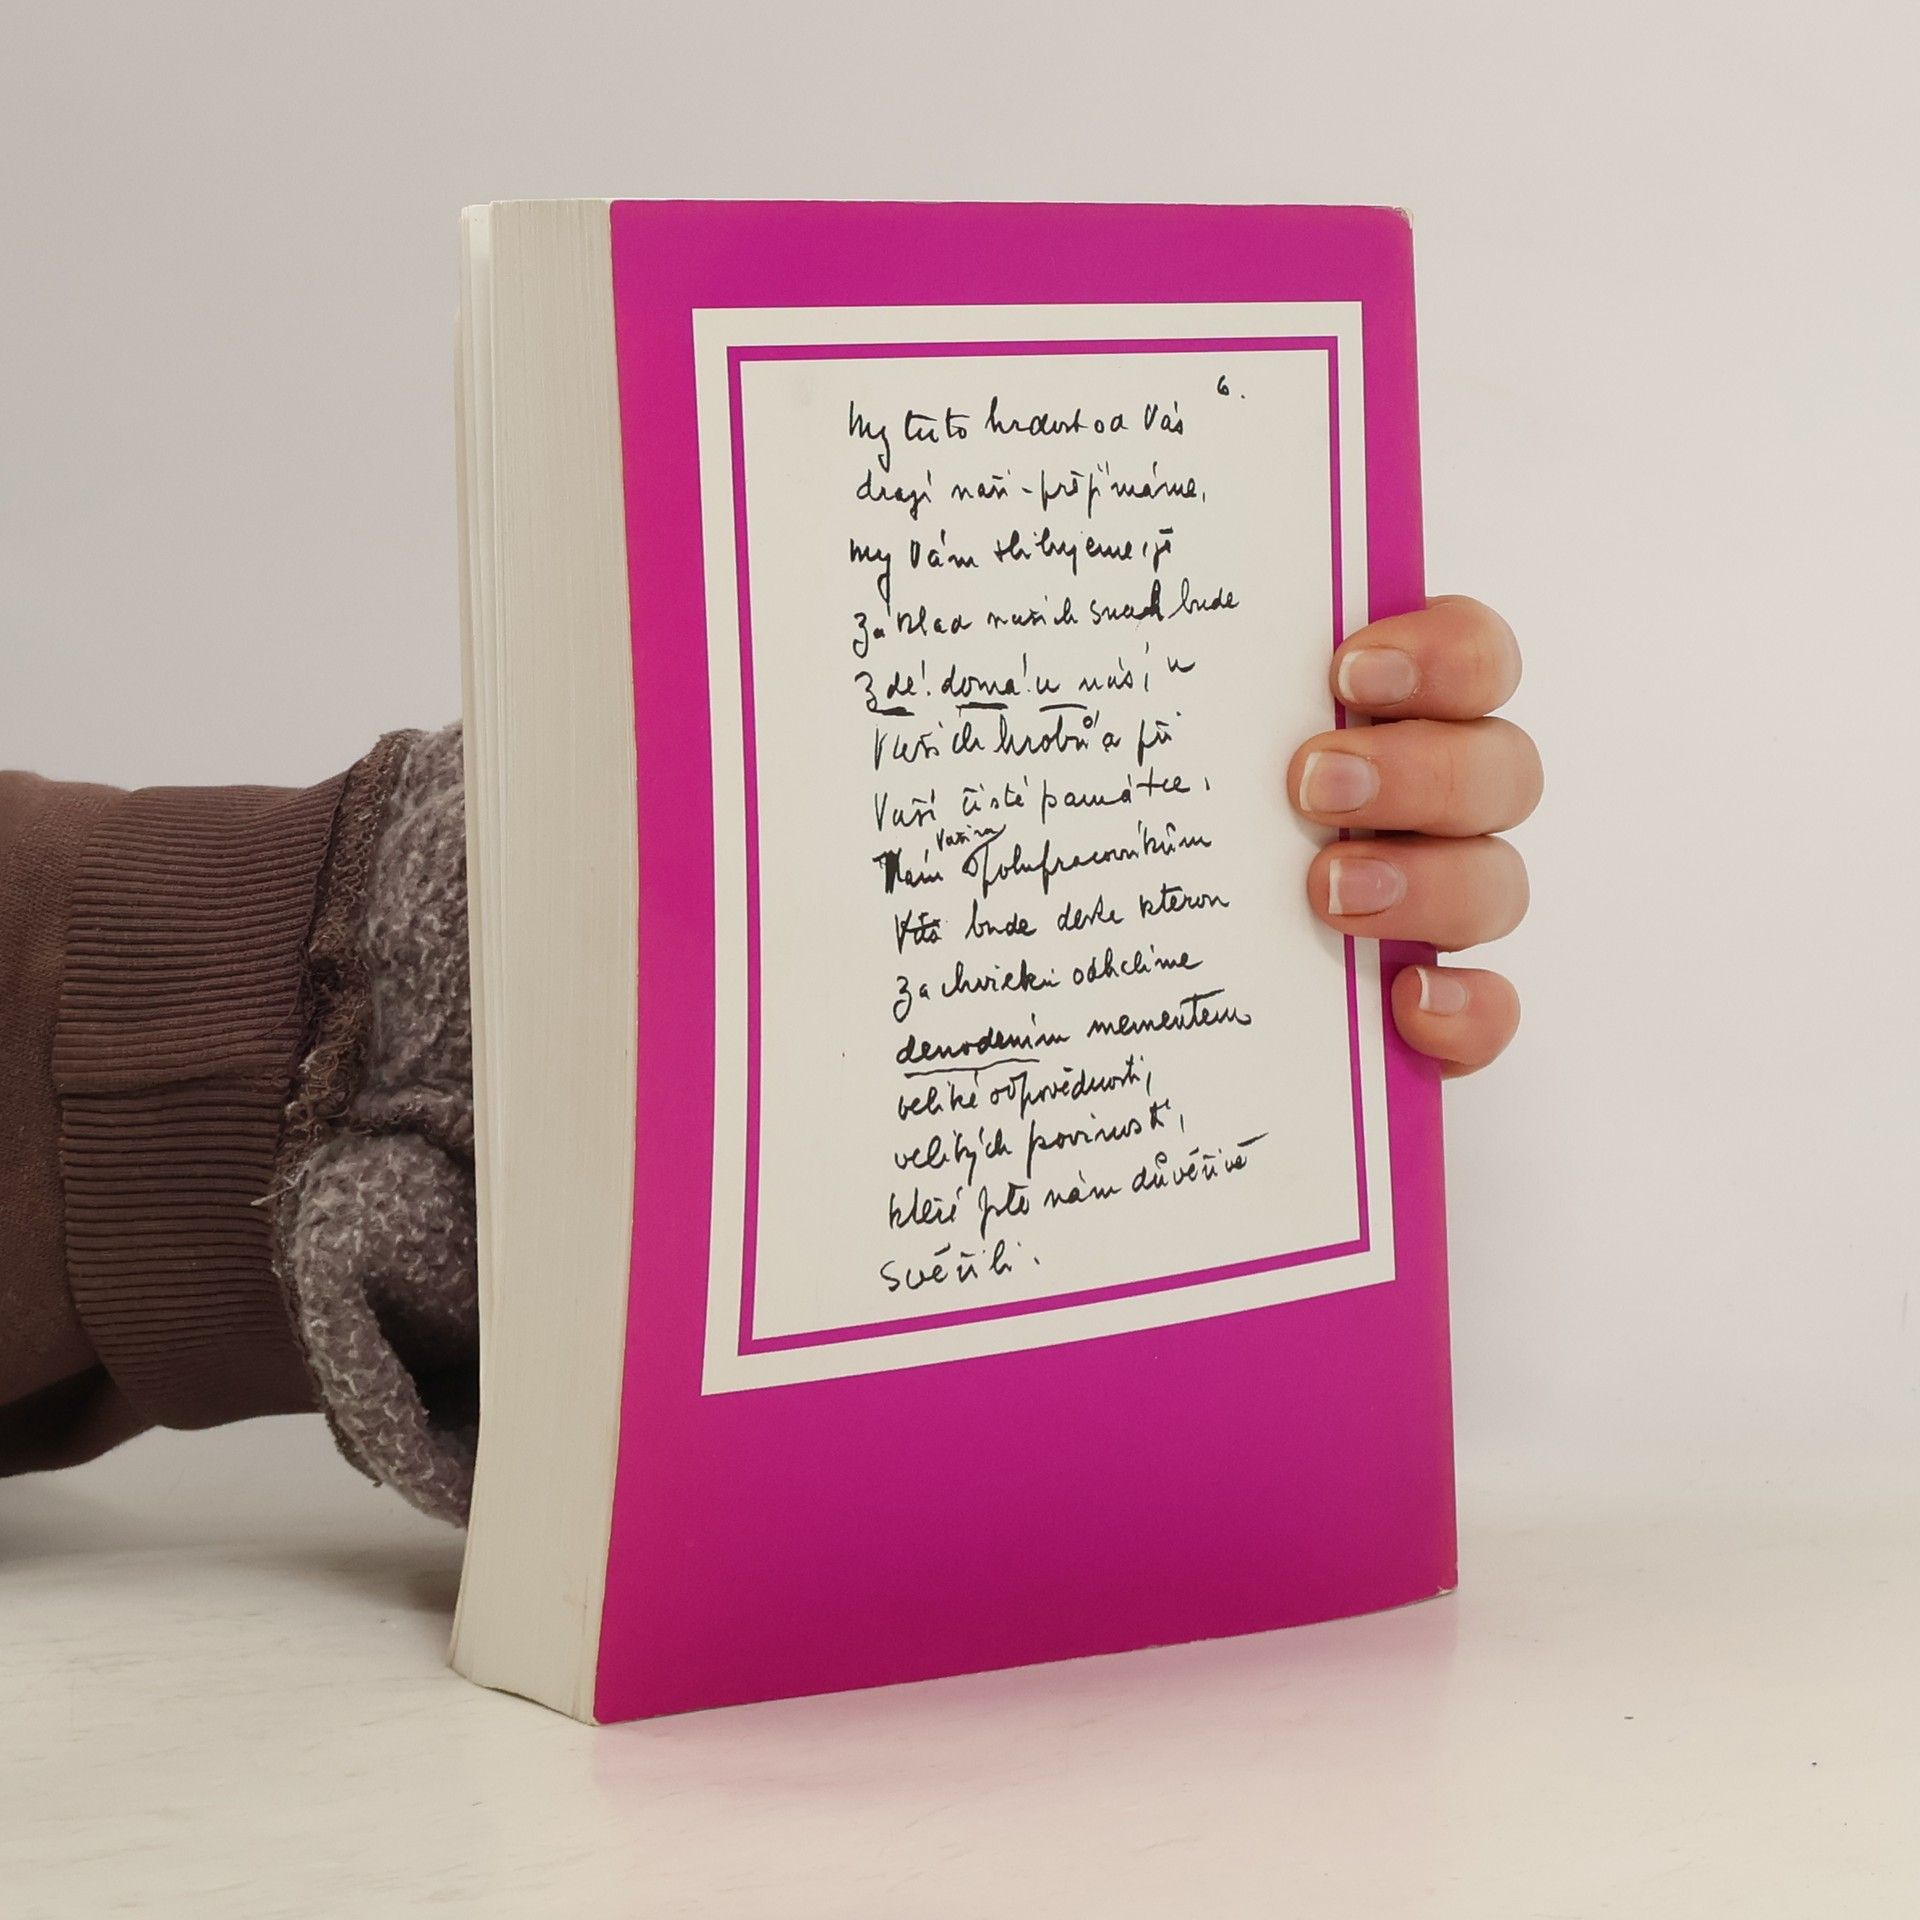 6.
My tuto hrdost od Vás
drazí naši - přijímáme,
my Vám slibujeme, že
Základ našich snah bude
Zde! doma! u nás, u
Vašich hrobů a při
Vaší čisté památce,
Vašim
Nám Spolupracovníkům
bude deska kterou
Za chvilku odhalíme
denodením mementem
veliké odpovědnosti,
velikých povinností,
které jste nám důvěřivě
Svěřili.